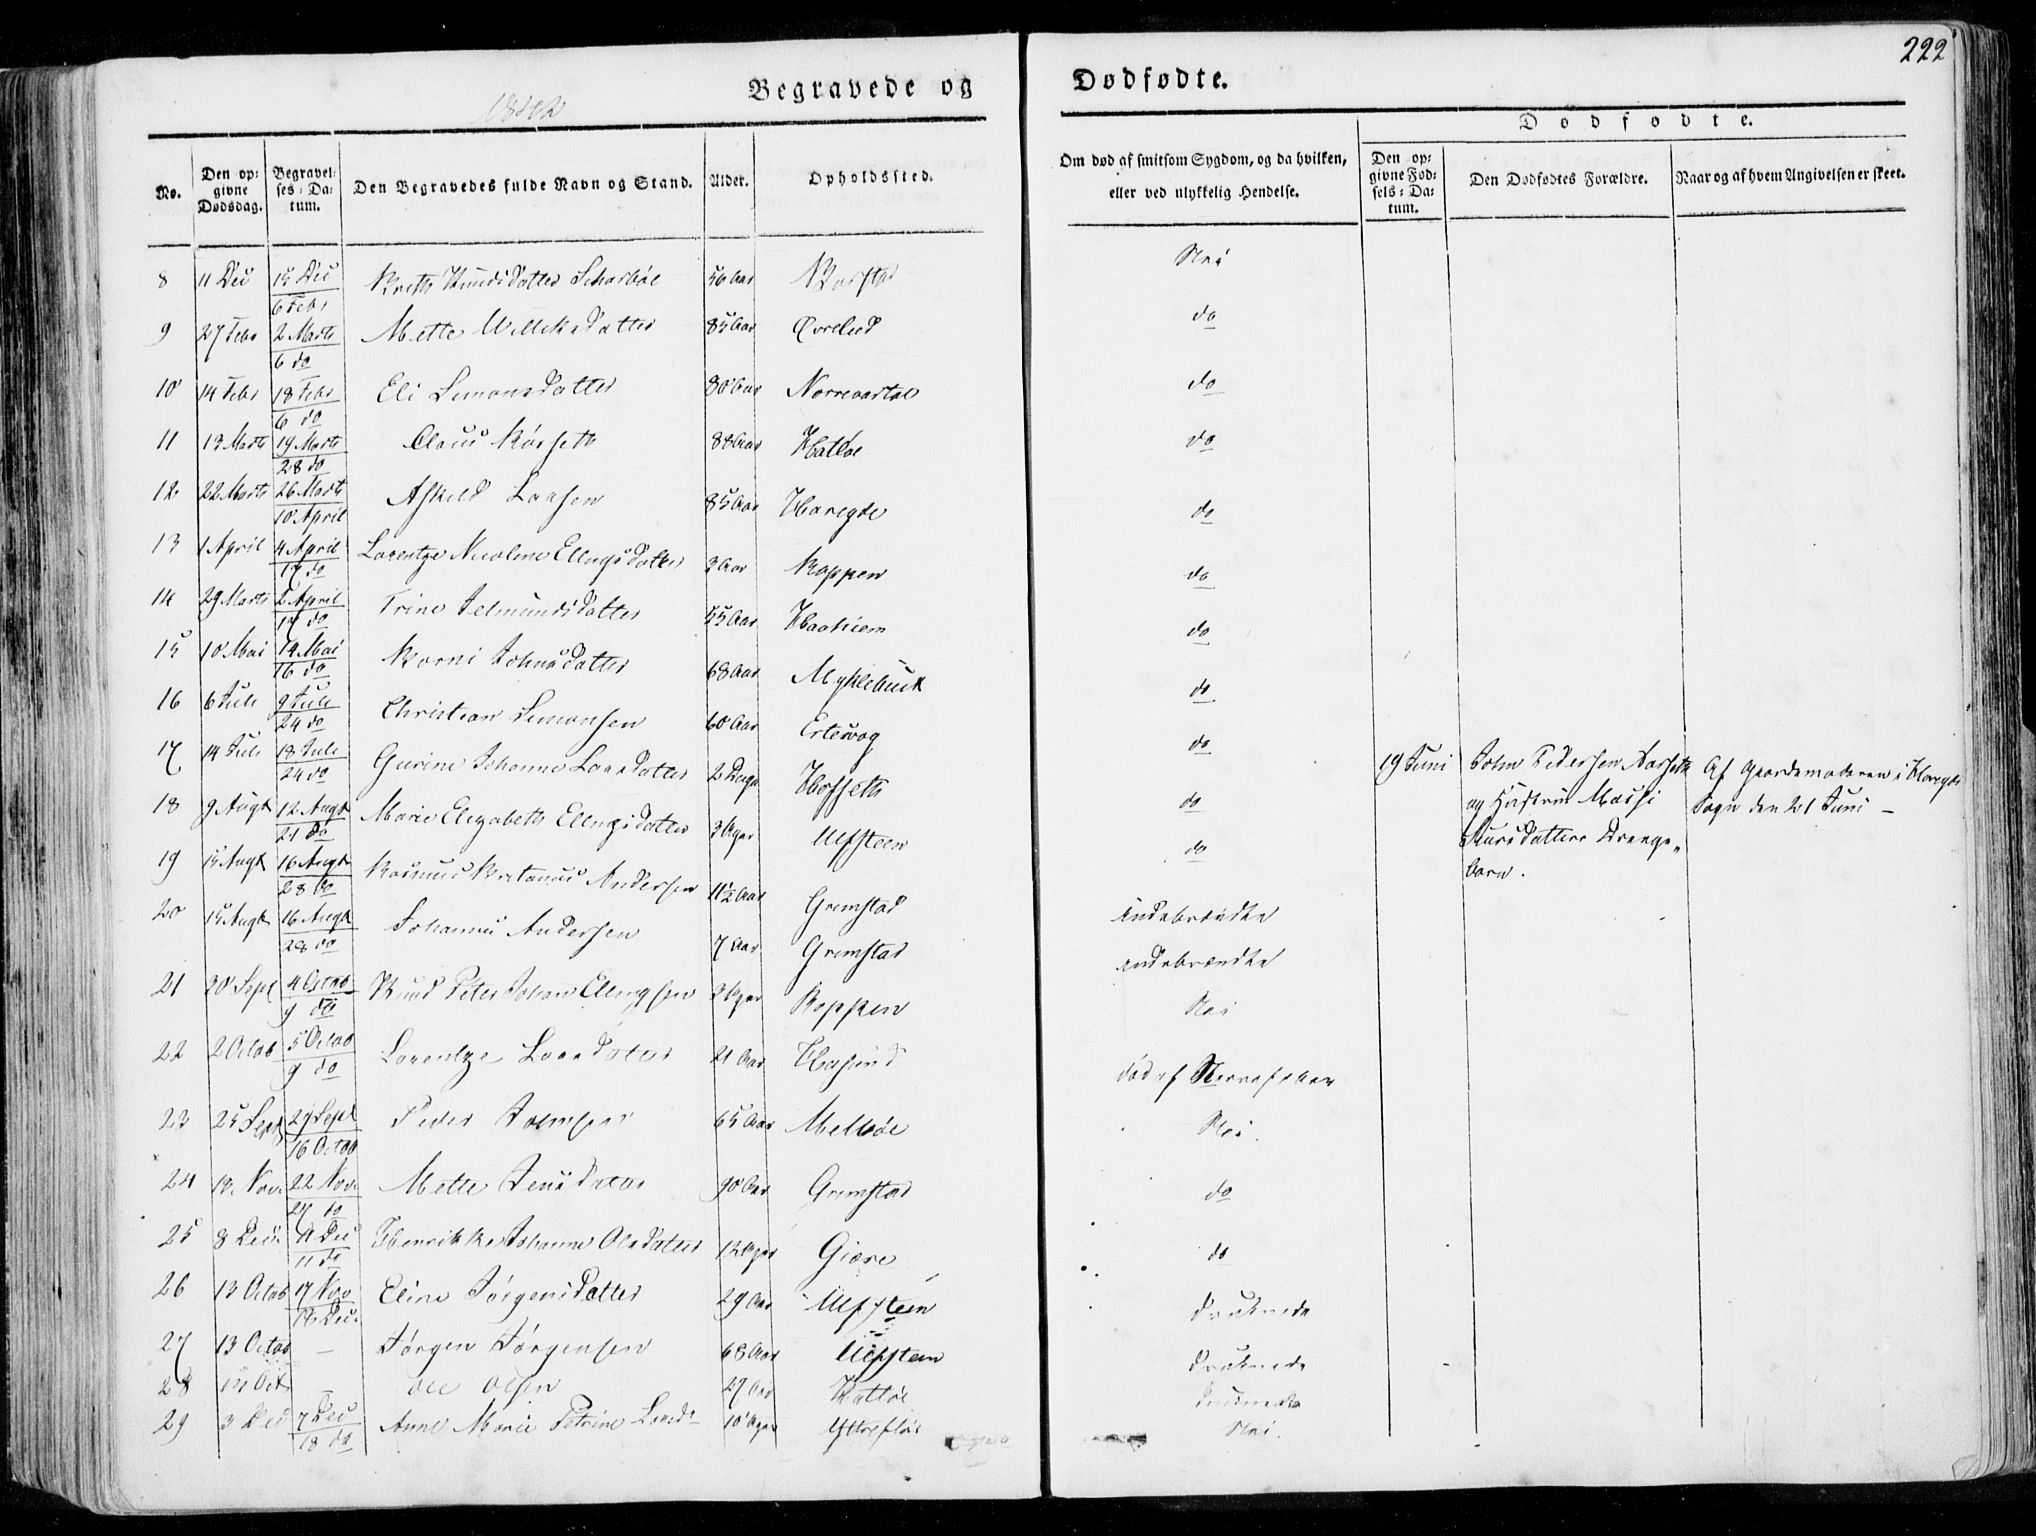 222
Begravede og Dødfødte.
1842
Dødfødte.
No. Den opgivne Dødsdag. Begravelses-Datum. Den Begravedes fulde Navn og Stand. Alder. Opholdssted. Om død af smitsom Sygdom, og da hvilken, eller ved ulykkelig Hendelse. Den opgivne Fødsels-Datum. Den Dødfødtes Forældre. Naar og af hvem Angivelsen er skeet.
8 11 Dec 15 Dec 6 Febr Knudsdatter 56 Aar Nei
9 27 Febr 2 Marts 6 do Mette Williksdatter 85 Aar do
10 14 Febr 18 Febr 6 do Eli Simonsdatter 80 Aar do
11 13 Marts 19 Marts 28 do Claus 88 Aar Hatløe do
12 22 Marts 26 Marts 10 April Askild Larsen 85 Aar Hareyde do
13 1 April 4 April 17 do Lorentze Nicoline Ellingsdatter 3 Aar Koppen do
14 29 Marts 2 April 17 do Trine Selmundsdatter 55 Aar do
15 10 Mai 14 Mai 16 do Karni Johnsdatter 68 Aar Myklebust do
16 6 Juli 9 Juli 24 do Christian Simonsen 60 Aar Ertesvog do
17 14 Juli 18 Juli 24 do Gurine Johanne Larsdatter 2 Dage do
18 9 Augt 12 Augt 21 do Marie Elizabeth Ellingsdatter 3 Uger Ulfsteen do
19 15 Augt 16 Augt 28 do Rasmus Andersen 11½ Aar Grimstad indebrændte
20 15 Augt 16 Augt 28 do Johannes Andersen 7 Aar Grimstad indebrændte
21 30 Sept 4 Octob 9 do Knud Peter Johan Ellingsen 3 Uger Koppen Nei
22 2 Octob 5 Octob 9 do Lorentze Larsdatter 21 Aar Hasund død af Nervefeber
23 25 Sept 29 Sept 16 Octob Peder Johnsen 65 Aar Melbøe Nei.
24 18 Nov. 22 Nov. 27 do Mette Jensdatter 90 Aar Grimstad do
25 8 Dec. 11 Dec 11 do Henrikke Johanne Olsdatter 12 Uger Giære do
26 13 Octob 17 Nov 18 Dec. Eline Jørgensdatter 29 Aar Ulfsteen druknede
27 13 Octob — Jørgen Jørgensen 68 Aar Ulfsteen druknede
28 13 Oct — Ole Olsen 27 Aar Hatløe druknede
29 3 Dec 7 Dec 18 do Anne Marie Petrine Larsd. 10 Uger Yttrefløe Nei.
19 Juni John Pedersen Aarseth Af Gaardemoderen i Hareyde
og Hustrue Massi Sogn den 21 Juni —
Knudsdatters Drenge-
barn.